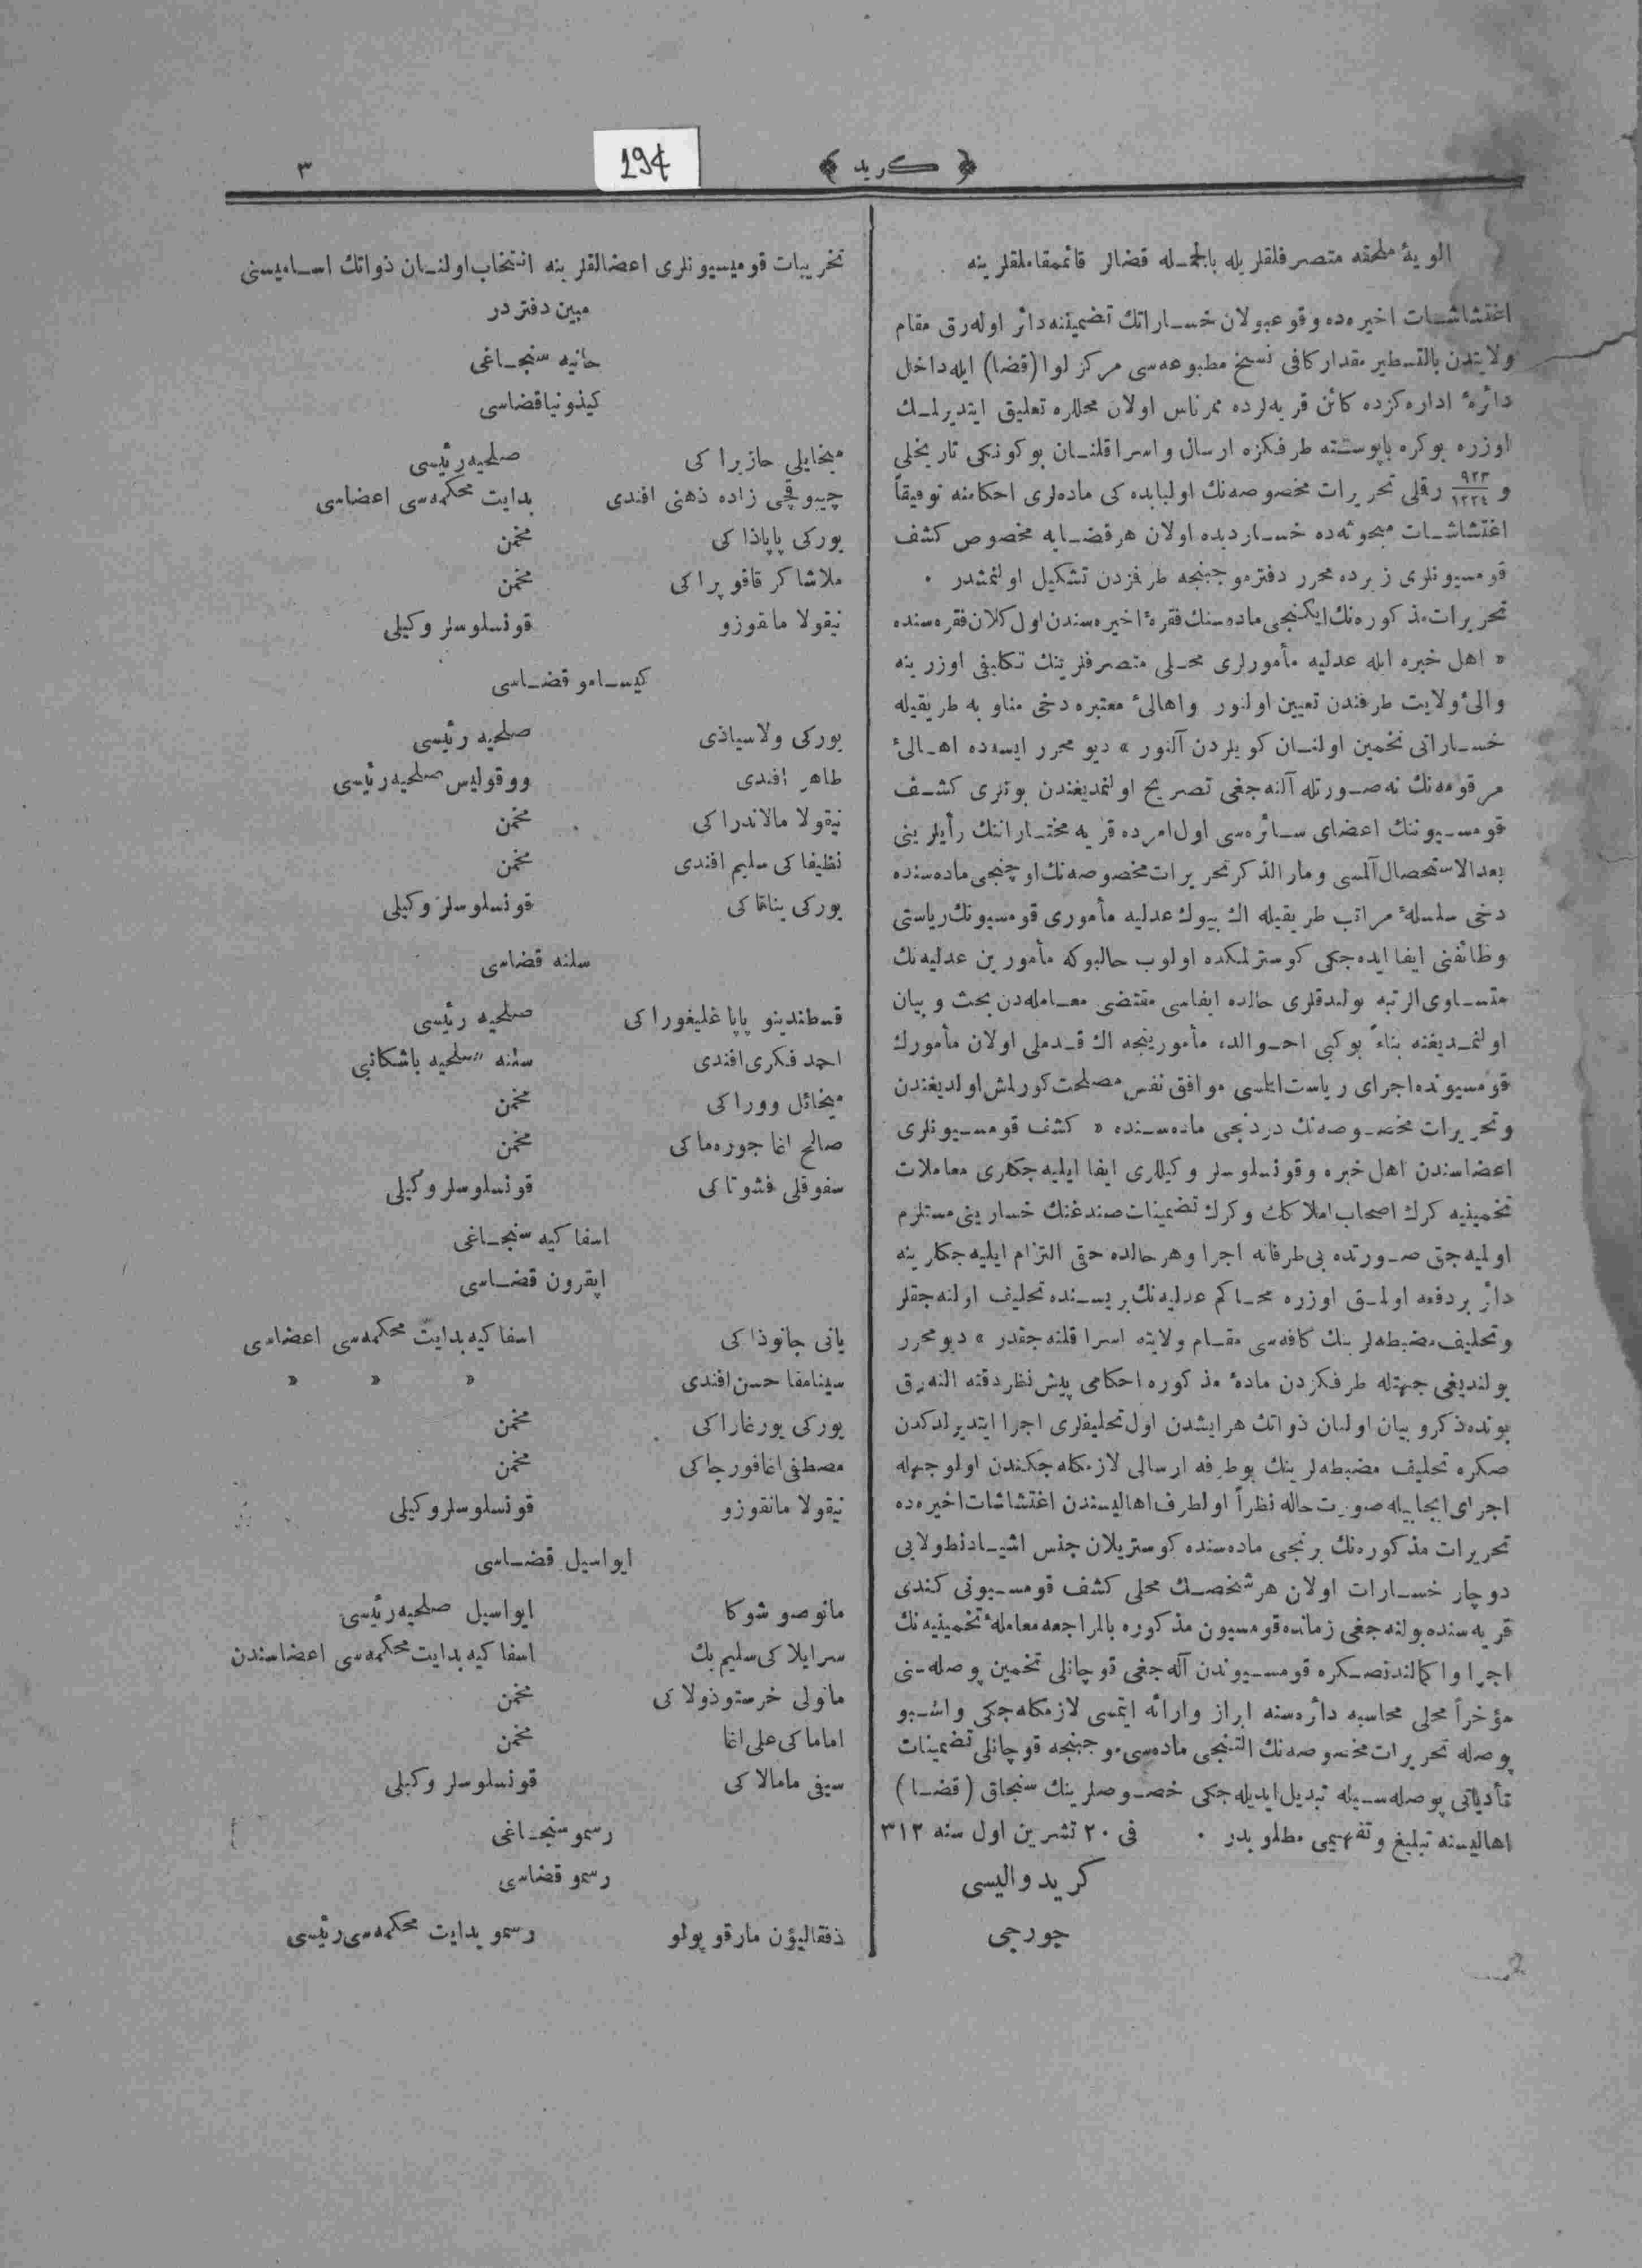 ﴿ كريد ﴾
194
٣
الويهٔ ملحقه متصرفلقلريله بالجمـله قضالر قائممقاملقلرينه
اغتشاشــات اخيره‌ده وقوعبولان خســاراتك تضمیننه‌دائر اوله‌رق مقام
ولايتدن بالتــطير مقدار كافى نسخ مطبوعه‌سى مركز لوا (قضا) ايله‌داخل
دائرهٔ اداره‌كزده كائن قريه‌لرده ممرناس اولان محللره تعليق ايتديرلمــك
اوزره بوكره باپوسته طرفكزه ارسال واسرا قلنــان بوكونكى تاريخلى
و ٩٢٣/١٢٢٤ رقلى تحريرات مخصوصه‌نك اولبابده كى ماده‌لرى احكامنه توفيقاً
اغتشاشــات مبحوثه‌ده خسـارديده اولان هرقضـايه مخصوص كشف
قومسيونلرى زبرده محرر دفترموجبنجه طرفزدن تشكيل اولنمشدر ٠
تحريرات‌مذكوره‌نك‌ايكنجى‌ماده‌سنك‌فقرهٔ اخيره‌سندن‌اول‌كلان‌فقره‌سنده
« اهل خبره ايله عدليه مأمورلرى محـلى متصرفلرينك تكليفى اوزرينه
والئ ولايت طرفندن تعيين اولنور واهالئ معتبره دخى مناوبه طريقيله
خســاراتى تخمين اولنــان كويلردن آلنور » ديو محرر ايسه‌ده اهـالئ
مرقومه‌نك نه‌صـورتله آلنه‌جغى تصريح اولنمديغندن بونلرى كشــف
قومسـيوننك اعضاى سـائره‌سى اول‌امرده قريه مختـاراننك رأيلرينى
بعدالاستحصال‌آلمسى ومارالذكرتحريرات‌مخصوصه‌نك‌اوچنجى‌ماده‌سنده
دخى سلسلهٔ مراتب طريقيله اك بيوك عدليه مأمورى قومسيونك‌رياستى
وظائفنى ايفا ايده‌جكى كوسترلمكده اولوب حالبوكه مأمورين عدليه‌نك
متسـاوى‌الرتبه بولندقلرى حالده ايفاسى مقتضى معـامله‌دن بحث وبيان
اولنمـديغنه بناءً بوكبى احـوالده، مأمورينجه اك قـدملى اولان مأمورك
قومسيونده‌اجراى رياست‌ايتلسى موافق نفس مصلحت‌كورلمش‌اولديغندن
وتحريرات مخصـوصه‌نك دردنجى ماده‌سـنده « كشف قومسـيونلرى
اعضاسندن اهل خبره وقونسلوسلر وكيللرى ايفا ايليه‌جكلرى معاملات
تخمينيه كرك اصحاب‌املاكك وكرك تضمينات‌صندغنك خسارينى‌مستلزم
اولميه‌جق صـورتده بى‌طرفانه اجرا وهرحالده حقى التزام ايليه‌جكلرينه
دائر بردفعه اولمـق اوزره محـاكم عدليه‌نك‌بريسـنده تحليف اولنه‌جقلر
وتحليف‌مضبطه‌لرينك كافه‌سى مقـام ولايته اسرا قلنه‌جقدر » ديومحرر
بولنديغى جهتله طرفكزدن مادهٔ مذكوره احكامى پيش‌نظردقته النه‌رق
بونده‌ذكروبيان اولنان ذواتك هرايشدن اول‌تحليفلرى اجرا ايتديرلدكدن
صكره تحليف مضبطه‌لرينك بوطرفه ارسالى لازمكله‌جكندن اولوجهله
اجراى‌ايجابيله‌صورت‌حاله نظراً اولطرف‌اهاليسندن اغتشاشات‌اخيره‌ده
تحريرات مذكوره‌نك برنجى ماده‌سنده كوستريلان جنس اشيـادنطولايى
دوچار خســارات اولان هرشخصـك محلى كشف قومسـيونى كندى
قريه‌سنده‌بولنه‌جغى زمانده‌قومسيون مذكوره بالمراجعه‌معاملهٔ تخمينيه‌نك
اجرا واكمالندنصـكره قومسـيوندن آله‌جغى قوچانلى تخمين پوصله‌سنى
مؤخراً محلى محاسبه دائره‌سنه ابراز وارائه ايتمسى لازمكله‌جكى واشـبو
پوصله تحريرات‌مخصوصه‌نك التنجى ماده‌سى‌موجبنجه قوچانلى تضمينات
تأدياتى پوصله‌سـيله تبديل‌ايديله‌جكى خصـوصلرينك سنجاق (قضـا)
اهاليسنه تبليغ وتفهيمى مطلوبدر ٠ فى ٢٠ تشرين اول سنه ٣١٢
كريد واليسى
جورجى
تخريبات قوميسيونلرى اعضالقلرينه انتخاب‌اولنــان ذواتك اســاميسنى
مبين دفتردر
حانيه سنجــاغى
كيذونياقضاسى
ميخايلى حازيراكى صلحيه‌رئيسى
چيبوقچى زاده ذهنى افندى بدايت محكمه‌سى اعضاسى
يوركى پاپاذاكى مخمن
ملاشاكر قاقوپراكى مخمن
نيقولا مانقوزو قونسلوسلر وكيلى
كيســامو قضــاسى
يوركى ولاسياذى صلحيه رئيسى
طاهر افندى ووقوليس صلحيه‌رئيسى
نيقولا مالاندراكى مخمن
نظيفاكى سليم افندى مخمن
يوركى يناقاكى قونسلوسلر وكيلى
سلنه قضاسى
قسطندينو پاپاغليغوراكى صلحيه رئيسى
احمد فكرى‌افندى سلنه صلحيه باشكاتبى
ميخائل ووراكى مخمن
صالح اغا جوره‌ماكى مخمن
سفوقلى فشوتاكى قونسلوسلر وكيلى
اسفاكيه سنجــاغى
اپقرون قضــاسى
يانى جانوذاكى اسفاكيه بدايت محكمه‌سى اعضاسى
سينامفا حسن‌افندى » » »
يوركى يورغاراكى مخمن
مصطفى‌اغافورجاكى مخمن
نيقولا مانقوزو قونسلوسلروكيلى
ايواسيل قضــاسى
مانوصو شوكا ايواسيل صلحيه‌رئيسى
سرايلاكى سليم بك اسفاكيه بدايت محكمه‌سى اعضاسندن
مانولى خرستوذولاكى مخمن
اماماكى على‌اغا مخمن
سيفى مامالاكى قونسلوسلر وكيلى
رسمو سنجــاغى
رسمو قضاسى
ذفقاليؤن مارقوپولو رسمو بدايت محكمه‌سى‌رئيسى